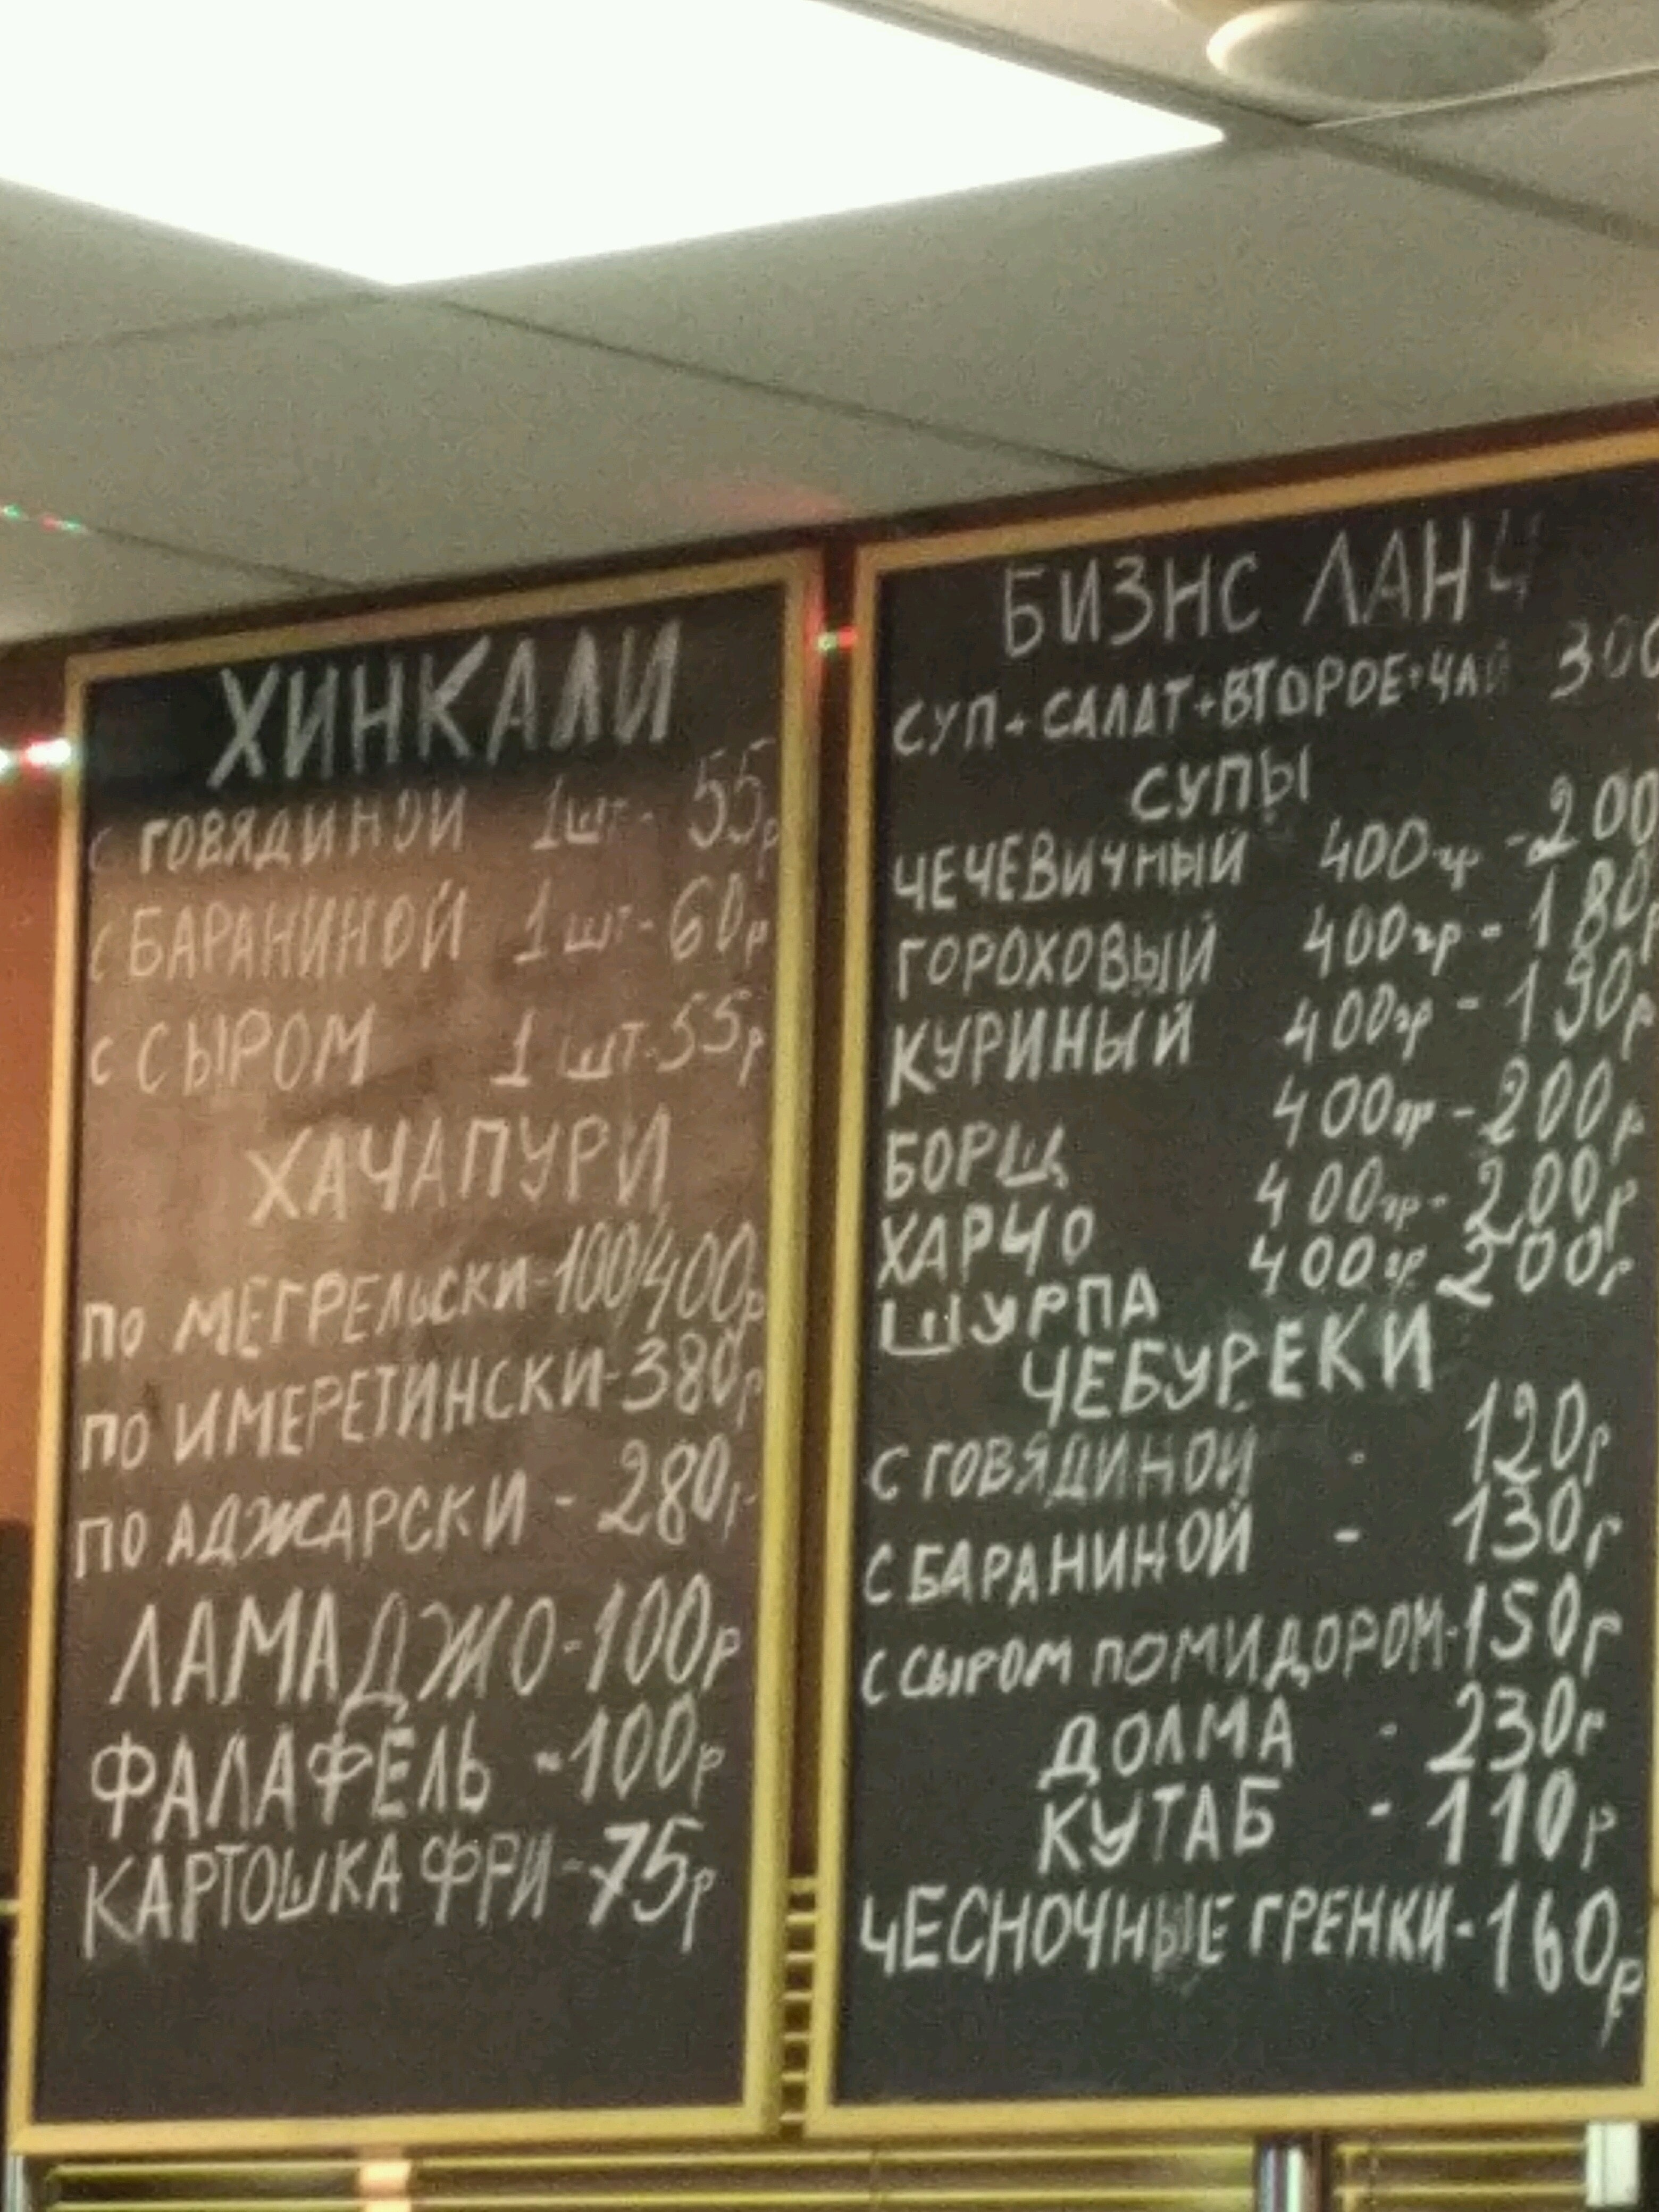 ХИНКАЛИ
С ГОВЯДИНОЙ 1шт- 55р
С БАРАНИНОЙ 1 шт- 60р
С СЫРОМ 1 шт-55р
ХАЧАПУРИ
ПО МЕГРЕЛЬСКИ-100/400р
ПО ИМЕРЕТИНСКИ-380р
ПО АДЖАРСКИ - 280р
ЛАМАДЖО-100р
ФАЛАФЕЛЬ -100р
КАРТОШКА ФРИ-75р
БИЗНС ЛАНЧ
СУП+САЛАТ+ВТОРОЕ+ЧАЙ 300
СУПЫ
ЧЕЧЕВИЧНЫЙ 400гр -200
ГОРОХОВЫЙ 400гр - 180р
КУРИНЫЙ 400гр - 190р
БОРЩ 400гр - 200р
ХАРЧО 400гр - 200р
ШУРПА 400гр 200р
ЧЕБУРЕКИ
С ГОВЯДИНОЙ - 120р
С БАРАНИНОЙ - 130р
С СЫРОМ ПОМИДОРОМ-150р
ДОЛМА - 230р
КУТАБ - 110р
ЧЕСНОЧНЫЕ ГРЕНКИ-160р